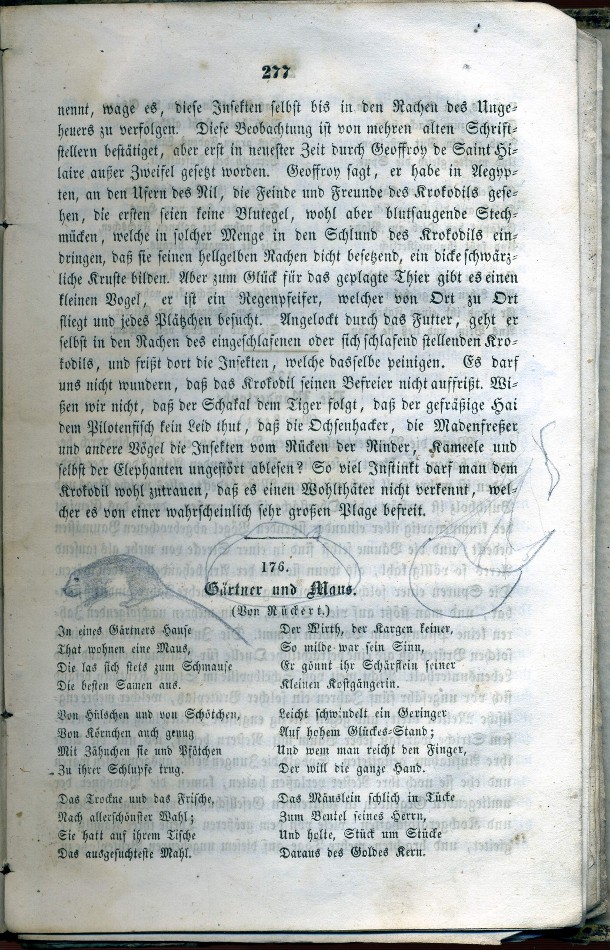 277
nennt, wage es, diese Insekten selbst bis in den Rachen des Unge-
heuers zu verfolgen. Diese Beobachtung ist von mehren alten Schrift-
stellern bestätiget, aber erst in neuester Zeit durch Geoffroy de Saint Hi-
laire außer Zweifel gesetzt worden. Geoffroy sagt, er habe in Aegyp-
ten, an den Ufern des Nil, die Feinde und Freunde des Krokodils gese-
hen, die ersten seien keine Blutegel, wohl aber blutsaugende Stech-
mücken, welche in solcher Menge in den Schlund des Krokodils ein-
dringen, daß sie seinen hellgelben Rachen dicht besetzend, ein dicke schwärz-
liche Kruste bilden. Aber zum Glück für das geplagte Thier gibt es einen
kleinen Vogel, er ist ein Regenpfeifer, welcher von Ort zu Ort
fliegt und jedes Plätzchen besucht. Angelockt durch das Futter, geht er
selbst in den Rachen des eingeschlafenen oder sich schlafend stellenden Kro-
kodils, und frißt dort die Insekten, welche dasselbe peinigen. Es darf
uns nicht wundern, daß das Krokodil seinen Befreier nicht auffrißt. Wi-
ßen wir nicht, daß der Schakal dem Tiger folgt, daß der gefräßige Hai
dem Pilotenfisch kein Leid thut, daß die Ochsenhacker, die Madenfreßer
und andere Vögel die Insekten vom Rücken der Rinder, Kameele und
selbst der Elephanten ungestört ablesen? So viel Instinkt darf man dem
Krokodil wohl zutrauen, daß es einen Wohlthäter nicht verkennt, wel-
cher es von einer wahrscheinlich sehr großen Plage befreit.
176.
Gärtner und Maus.
(Von Rückert.)
In eines Gärtners Hause
That wohnen eine Maus,
Die las sich stets zum Schmause
Die besten Samen aus.
Von Hülschen und von Schötchen,
Von Körnchen auch genug
Mit Zähnchen sie und Pfötchen
Zu ihrer Schlupfe trug.
Das Trockne und das Frische,
Nach allerschönster Wahl;
Sie hatt auf ihrem Tische
Das ausgesuchteste Mahl.
Der Wirth, der Kargen keiner,
So milde war sein Sinn,
Er gönnt ihr Schärflein seiner
Kleinen Kostgängerin.
Leicht schwindelt ein Geringer
Auf hohem Glückes-Stand;
Und wem man reicht den Finger,
Der will die ganze Hand.
Das Mäuslein schlich in Tücke
Zum Beutel seines Herrn,
Und holte, Stück um Stücke
Daraus des Goldes Kern.